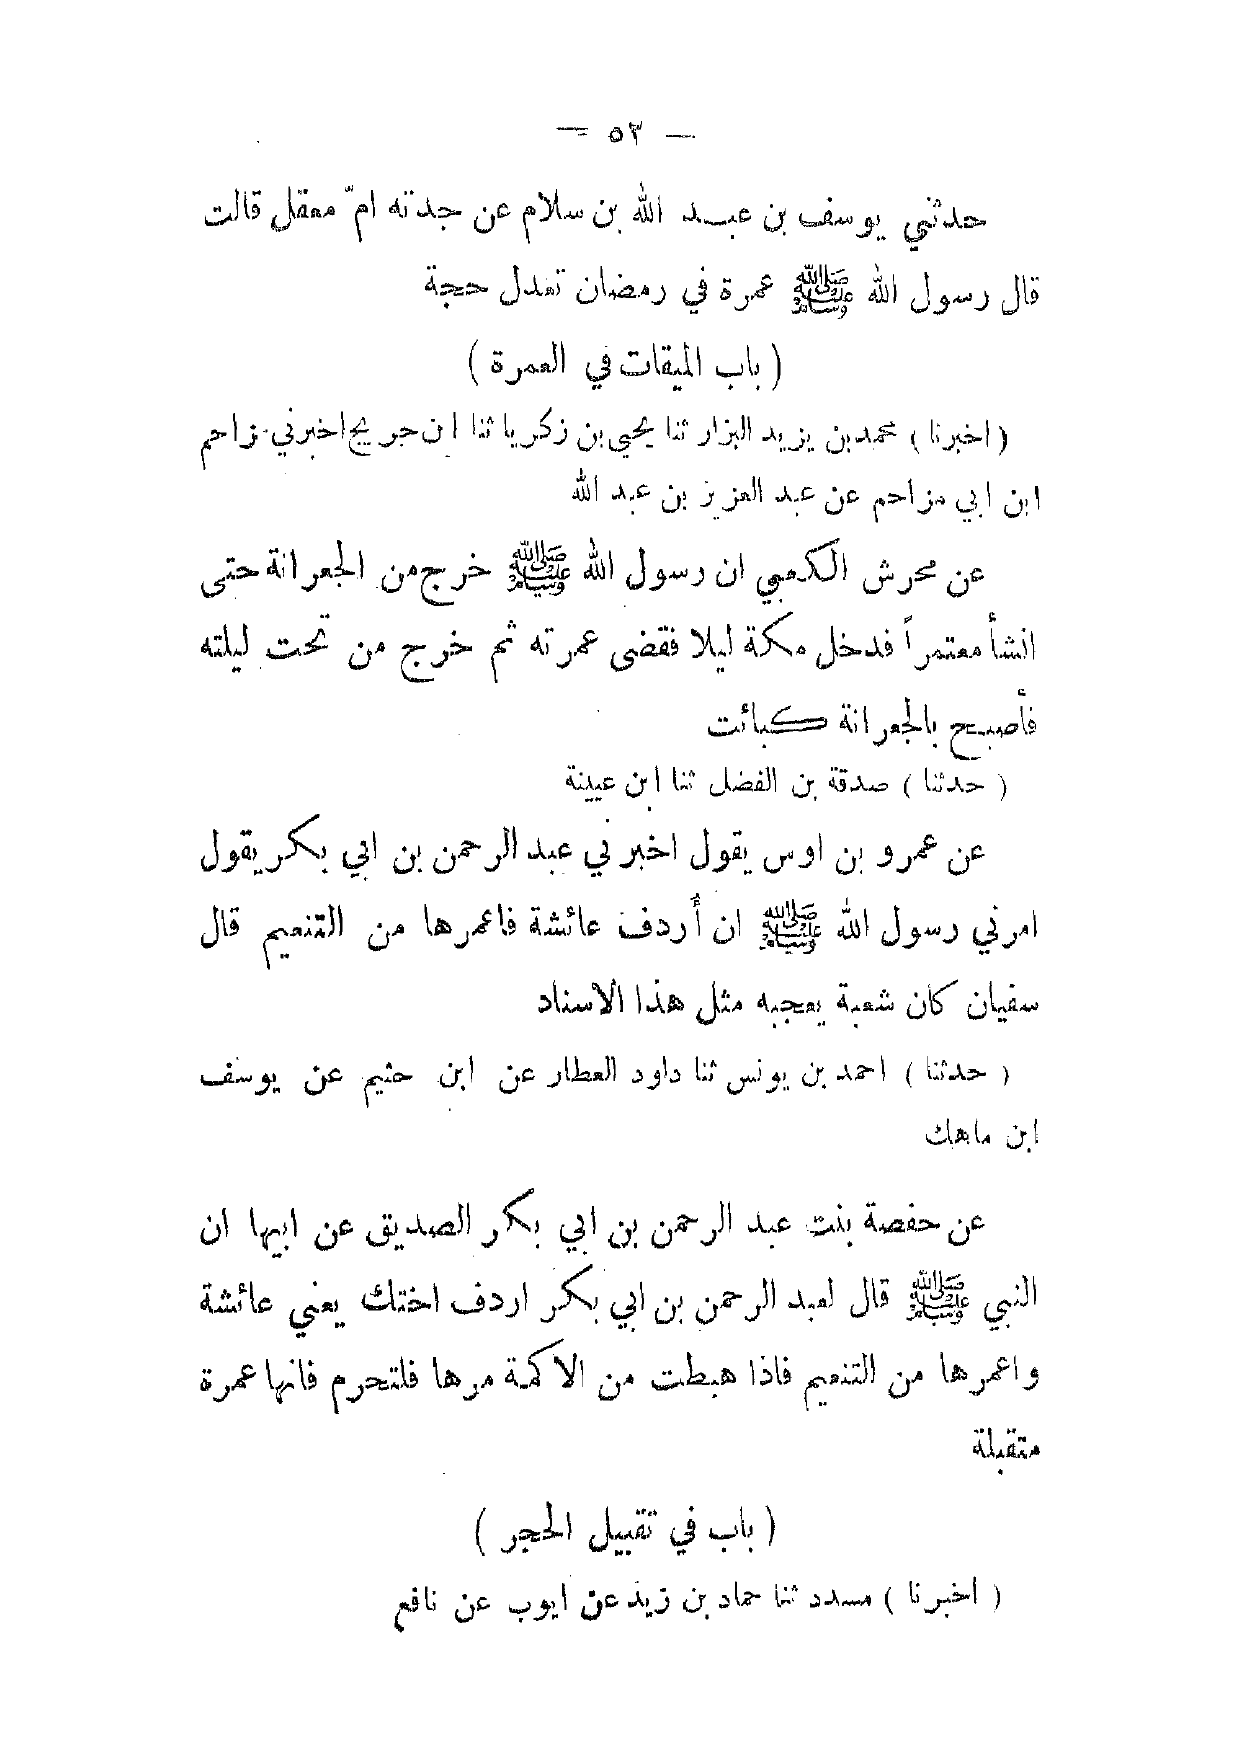 — ٥٣ —
حدثني يوسف بن عبد الله بن سلام عن جدته امّ معقل قالت
قال رسول الله ﷺ عمرة في رمضان تعدل حجة
( باب الميقات في العمرة )
( اخبرنا ) محمد بن يزيد البزار ثنا يحيى بن زكريا ثنا ابن جريج اخبرني مزاحم
ابن ابي مزاحم عن عبد العزيز بن عبد الله
عن محرش الكعبي ان رسول الله ﷺ خرج من الجعرانة حتى
انشأ معتمراً فدخل مكة ليلا فقضى عمرته ثم خرج من تحت ليلته
فأصبح بالجعرانة كبائت
( حدثنا ) صدقة بن الفضل ثنا ابن عيينة
عن عمرو بن اوس يقول اخبرني عبد الرحمن بن ابي بكر يقول
امرني رسول الله ﷺ ان أردف عائشة فاعمرها من التنعيم قال
سفيان كان شعبة يعجبه مثل هذا الاسناد
( حدثنا ) احمد بن يونس ثنا داود العطار عن ابن خثيم عن يوسف
ابن ماهك
عن حفصة بنت عبد الرحمن بن ابي بكر الصديق عن ابيها ان
النبي ﷺ قال لعبد الرحمن بن ابي بكر اردف اختك يعني عائشة
واعمرها من التنعيم فاذا هبطت من الاكمة مرها فلتحرم فانها عمرة
متقبلة
( باب في تقبيل الحجر )
( اخبرنا ) مسدد ثنا حماد بن زيد عن ايوب عن نافع